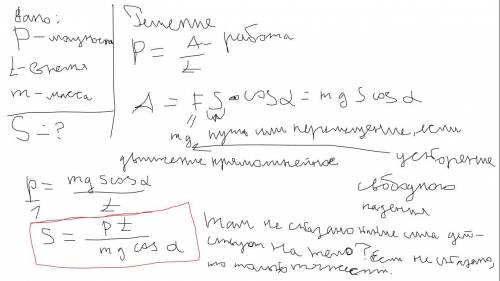 Дано:
P – мощность
t – время
m – масса
S = ?
Решение
P = A/t – работа
A = F S · cos α = mg S cos α
mg путь или перемещение, если
движение прямолинейное
ускорение
свободного
падения
P/1 = mg s cos α / t
S = P t / mg cos α
Там не сказано какие сила дейст-
на тело? Если не сказано,
то только